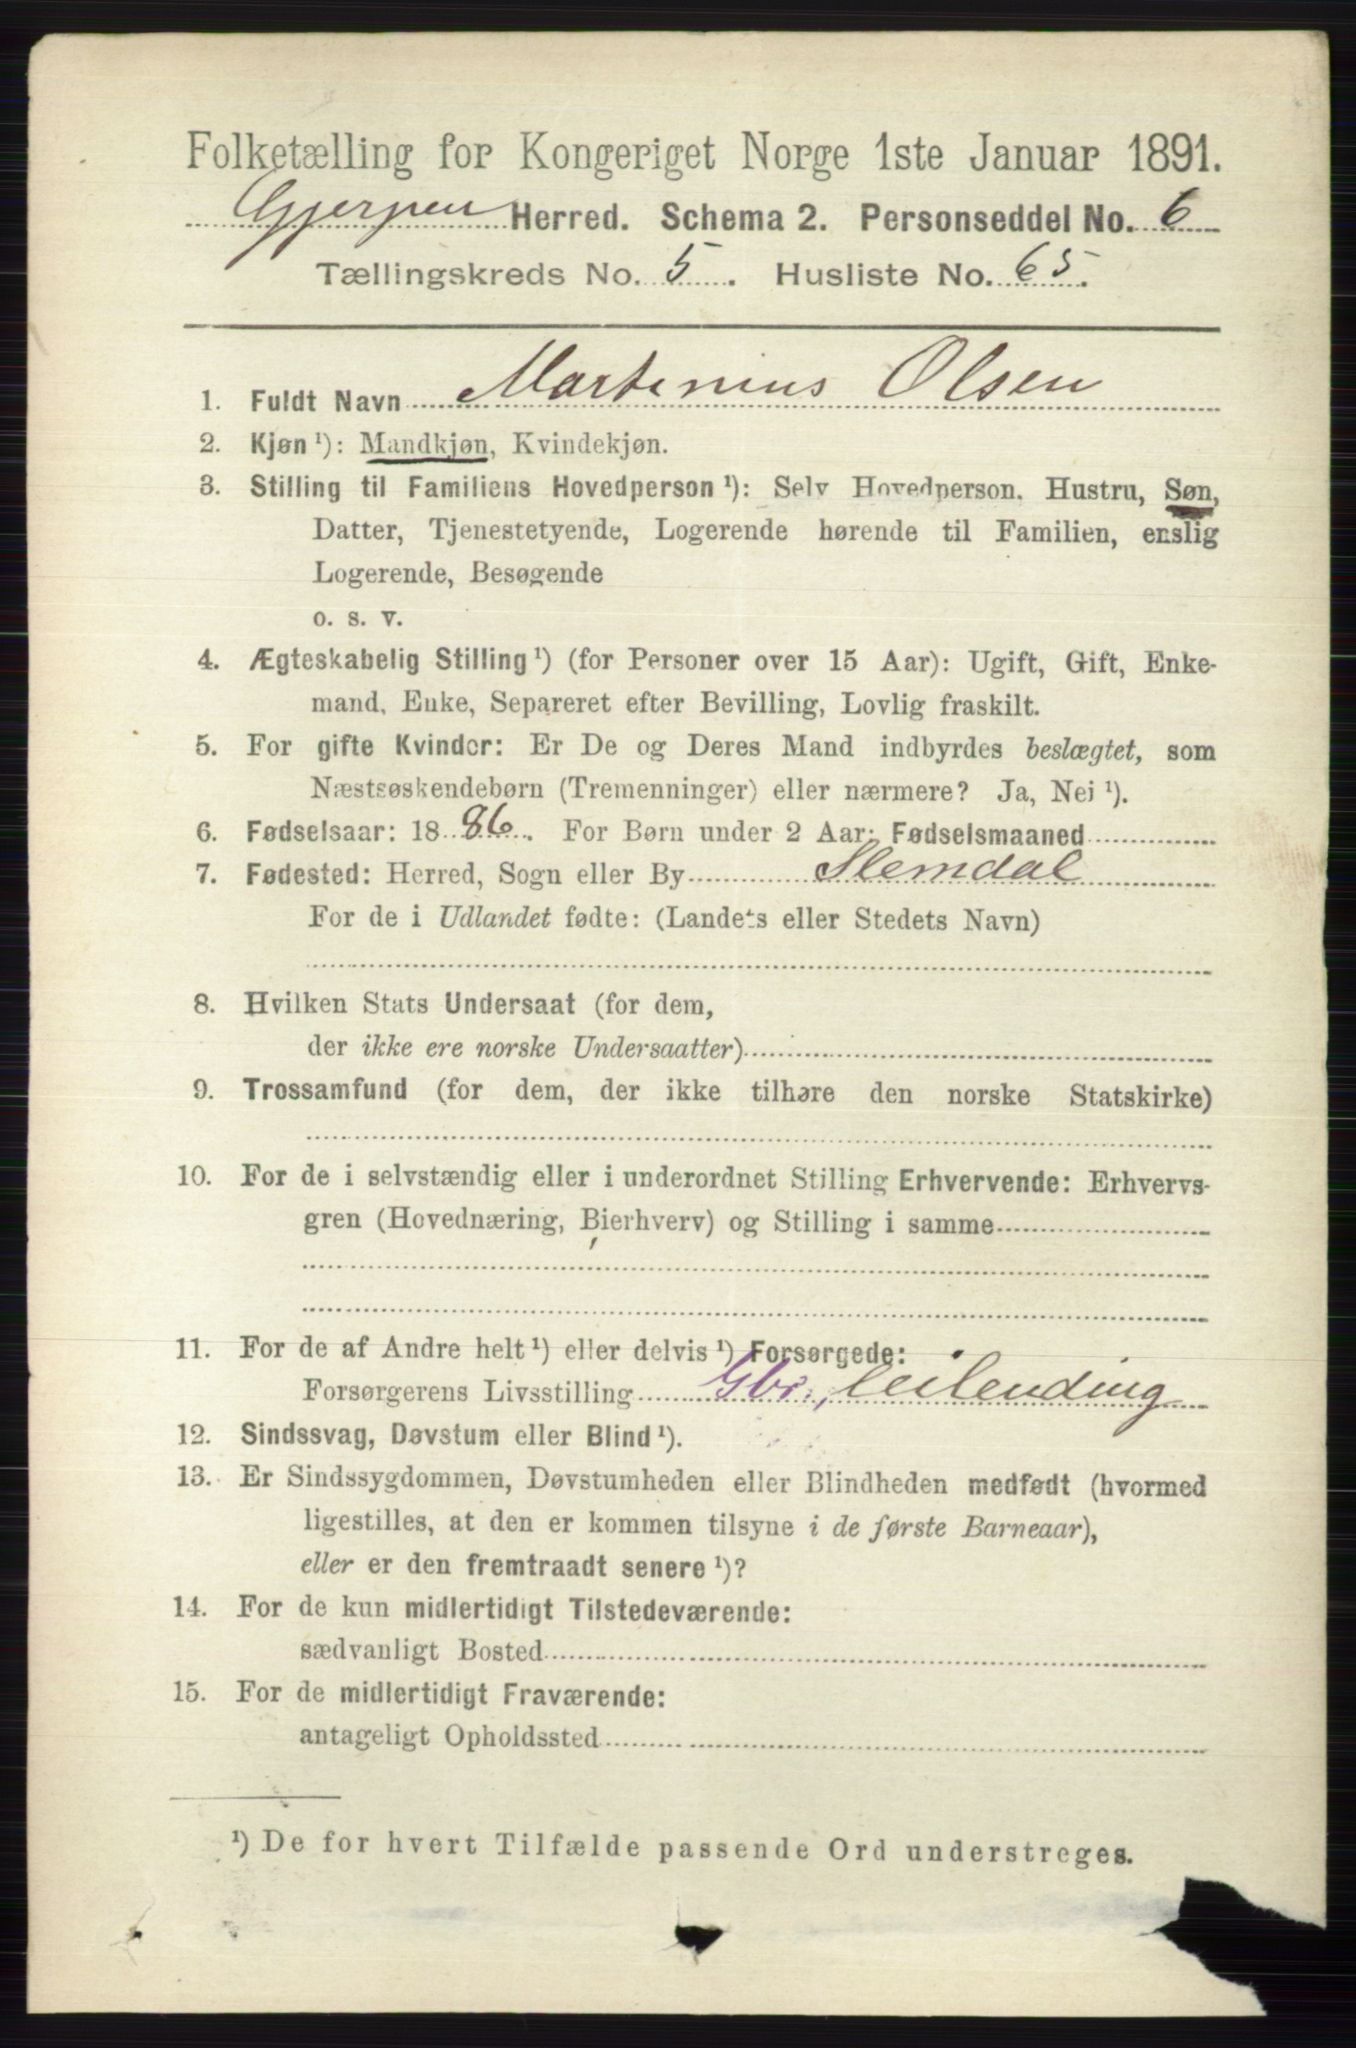 Folketælling for Kongeriget Norge 1ste Januar 1891.
Gjerpen Herred. Schema 2. Personseddel No. 6
Tællingskreds No. 5. Husliste No. 65.
1. Fuldt Navn Martinius Olsen
2. Kjøn ¹): Mandkjøn, Kvindekjøn.
3. Stilling til Familiens Hovedperson ¹): Selv Hovedperson. Hustru, Søn,
Datter, Tjenestetyende, Logerende hørende til Familien, enslig
Logerende, Besøgende
o. s. v.
4. Ægteskabelig Stilling ¹) (for Personer over 15 Aar): Ugift, Gift, Enke-
mand, Enke, Separeret efter Bevilling, Lovlig fraskilt.
5. For gifte Kvinder: Er De og Deres Mand indbyrdes beslægtet, som
Næstsøskendebørn (Tremenninger) eller nærmere? Ja, Nei ¹).
6. Fødselsaar: 1886. For Børn under 2 Aar: Fødselsmaaned
7. Fødested: Herred, Sogn eller By Slemdal
For de i Udlandet fødte: (Landets eller Stedets Navn)
8. Hvilken Stats Undersaat (for dem,
der ikke ere norske Undersaatter)
9. Trossamfund (for dem, der ikke tilhøre den norske Statskirke)
10. For de i selvstændig eller i underordnet Stilling Erhvervende: Erhvervs-
gren (Hovednæring, Bierhverv) og Stilling i samme
11. For de af Andre helt ¹) eller delvis ¹) Forsørgede:
Forsørgerens Livsstilling Gbr., leilending
12. Sindssvag, Døvstum eller Blind ¹).
13. Er Sindssygdommen, Døvstumheden eller Blindheden medfødt (hvormed
ligestilles, at den er kommen tilsyne i de første Barneaar),
eller er den fremtraadt senere ¹)?
14. For de kun midlertidigt Tilstedeværende:
sædvanligt Bosted
15. For de midlertidigt Fraværende:
antageligt Opholdssted
¹) De for hvert Tilfælde passende Ord understreges.